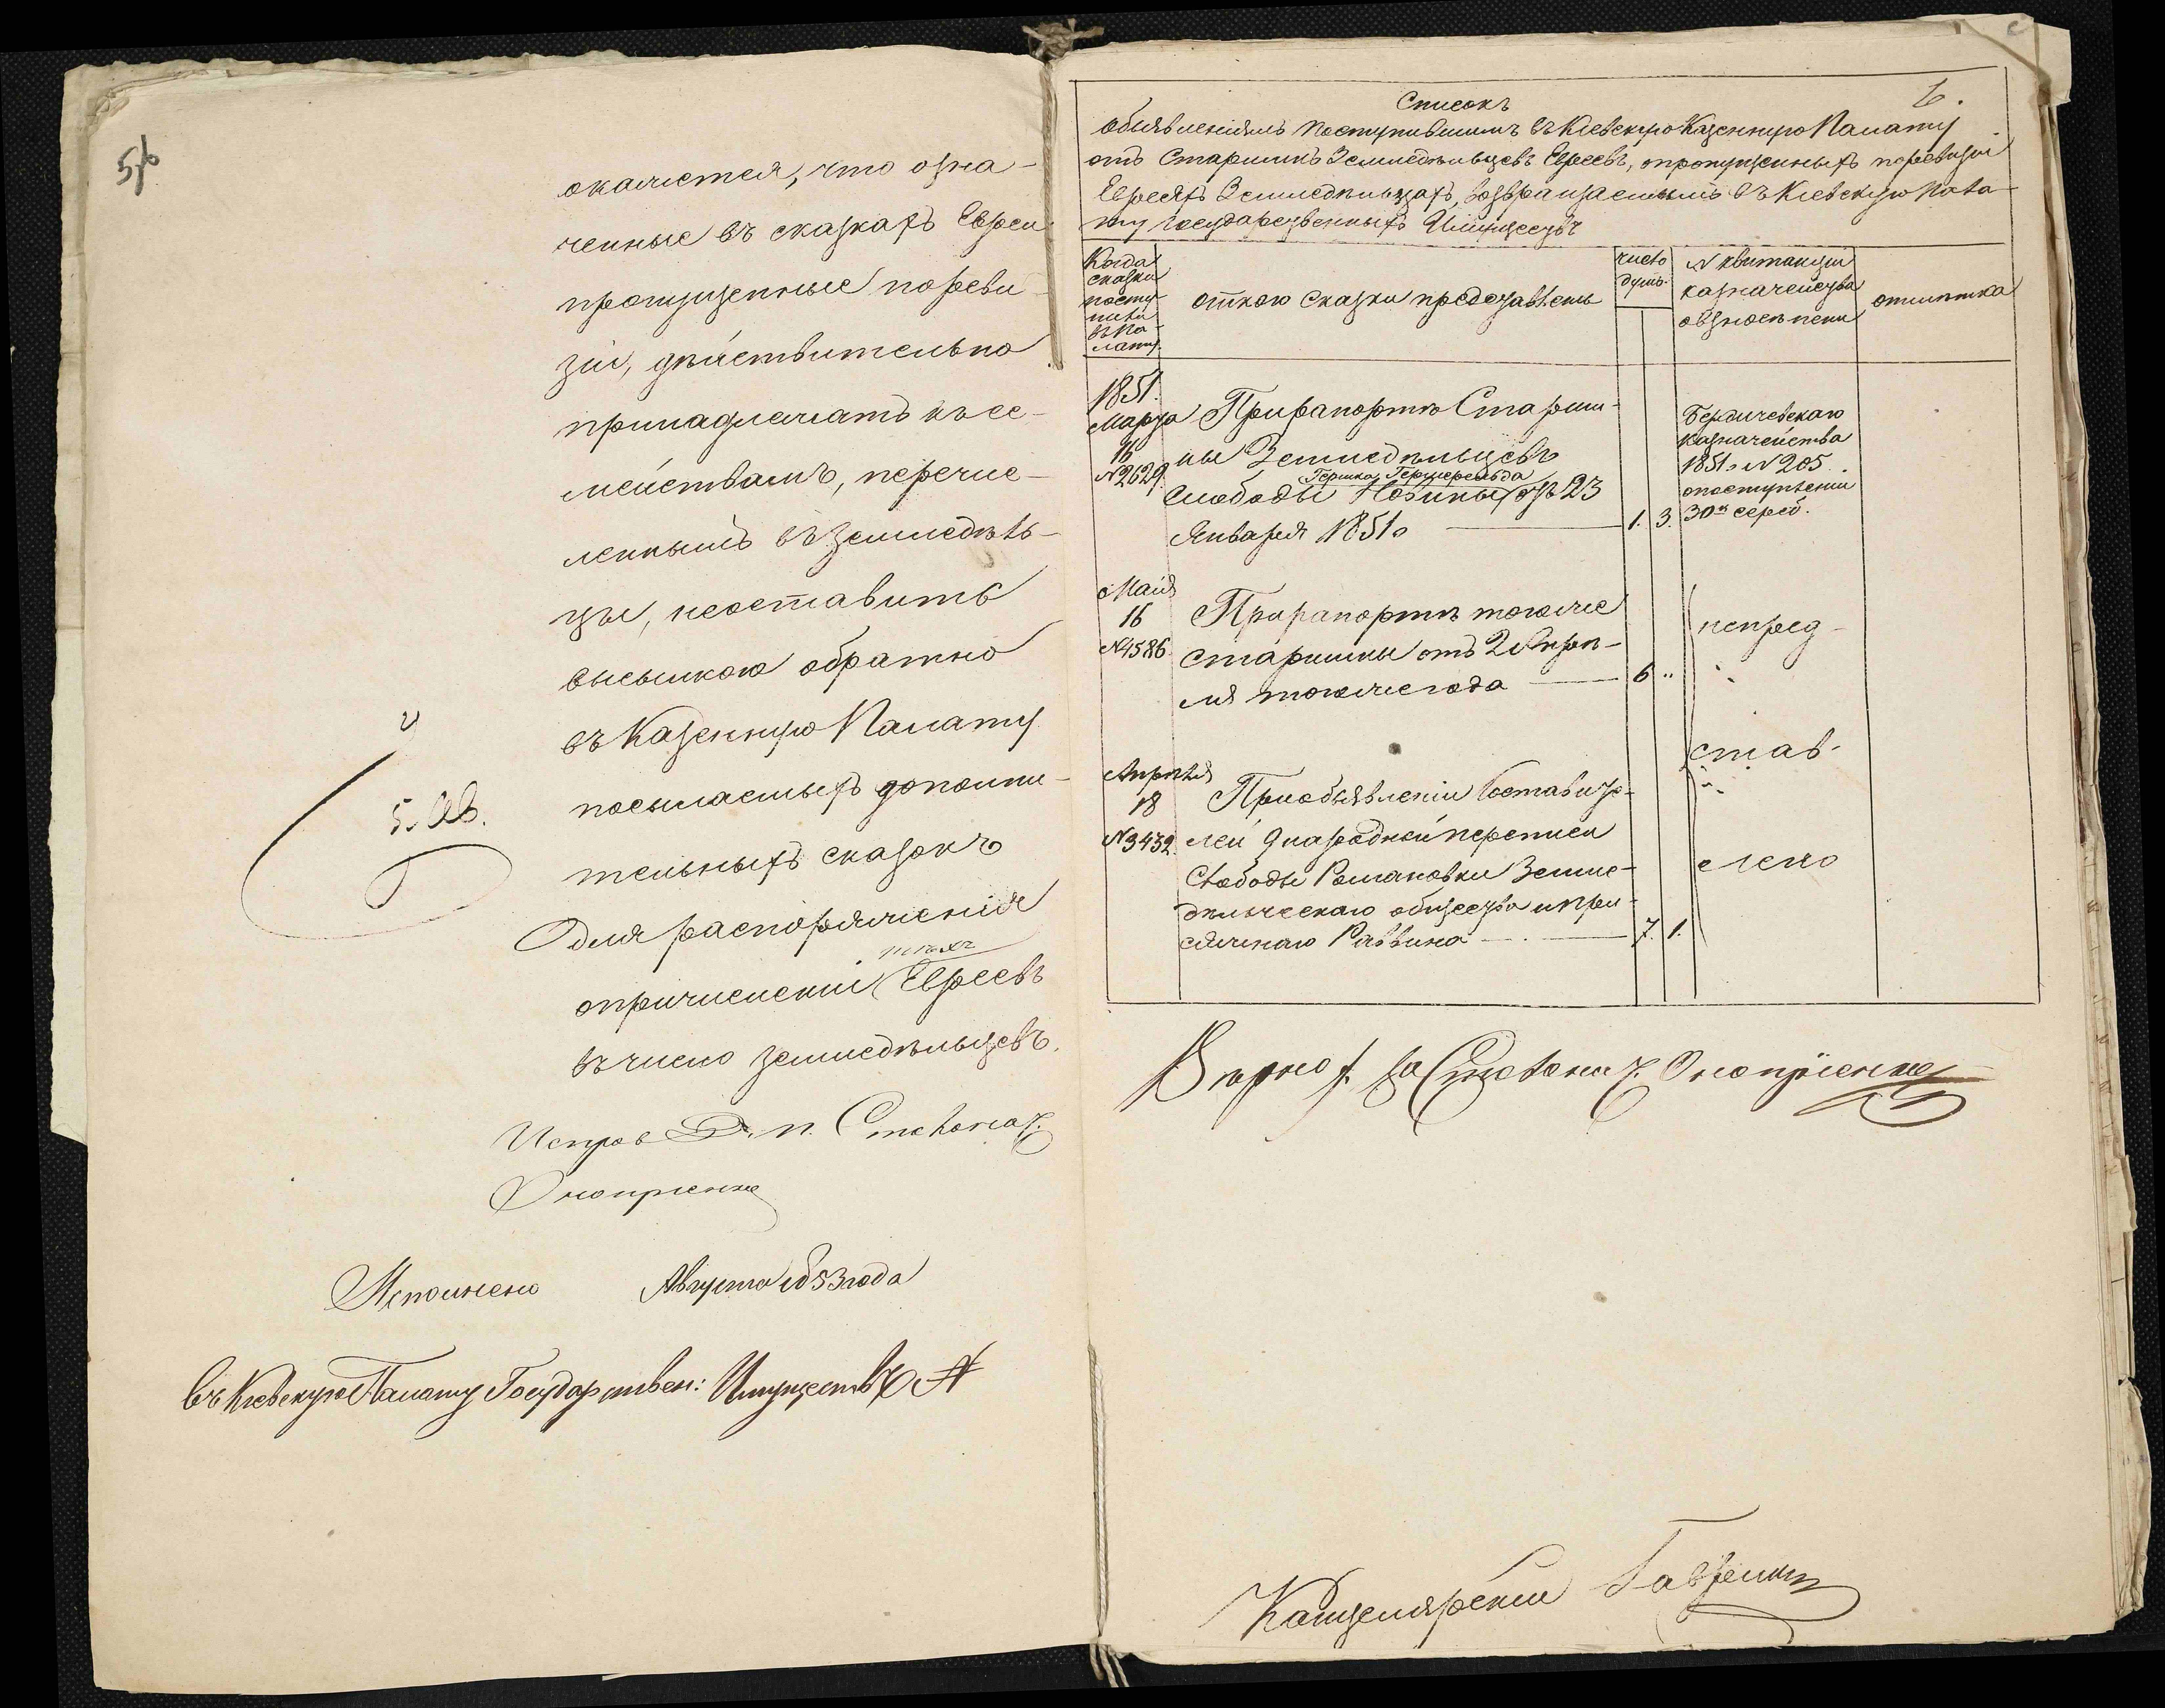 56
окажется, что озна-
ченные въ сказкахъ Евреи
пропущенные по реви-
зіи, дѣйствительно
принадлежатъ къ се-
мействамъ, перечис-
леннымъ въ земледѣль-
цы, неоставить
высылкою обратно
въ Казенную Палату
посылаемыхъ дополни-
тельныхъ сказокъ
для распоряженія
тѣхъ
о причисленіи Евреевъ
въ число земледѣльцевъ.
5. Ав.
Исправ. Д. п. Столонач.
Оноприенко
Исполнено Августа 1853 года
Въ Кіевскую Палату Государствен: Имуществъ
6.
Списокъ
объявленіямъ поступившимъ въ Кіевскую Казенную Палату
отъ Старшинъ Земледѣльцевъ Евреевъ, о пропущенныхъ по ревизіи
Евреяхъ Земледѣльцахъ, возвращаемымъ въ Кіевскую Пала-
ту Государственныхъ Имуществъ
Когда
сказки
посту-
пили
въ Па-
лату.
отъ кого сказки представлены
число
душъ.
N квитанціи
казначейства
о взносѣ пени
отмѣтка
1851.
Марта
16
N 2629
При рапортѣ Старши-
ны Земледѣльцевъ
Слободы отъ 23
Января 1851 г.
1. 3.
Бердичевскаго
казначейства
1851 г. N 205
о поступленіи
30 к. сереб.
Маія
16
N 4586
При рапортѣ того же
старшины отъ 2 Апрѣ-
ля того же года
6 "
непред-
Апрѣля
18
N 3432.
При объявленіи Составите-
лей 9 народной переписи
Слободы Романовки Земле-
дѣльческаго общества и при-
сяжнаго Раввина
7. 1.
став-
лено
Вѣрно: за Столонач. Оноприенко
Канцелярскій